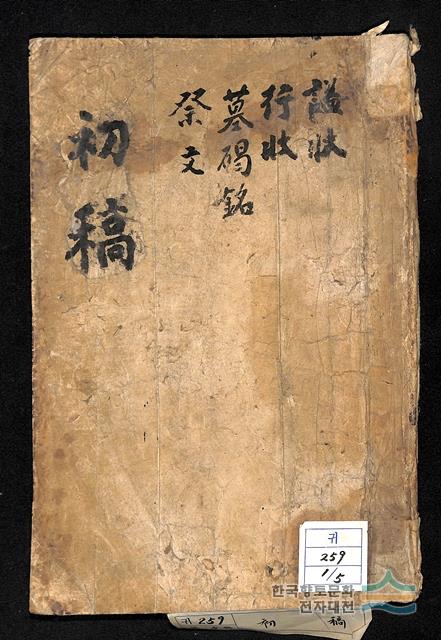 諡狀
行狀
墓碣銘
祭文
初稿
귀
259
1/5
한국향토문화
전자대전
귀 259
初 稿